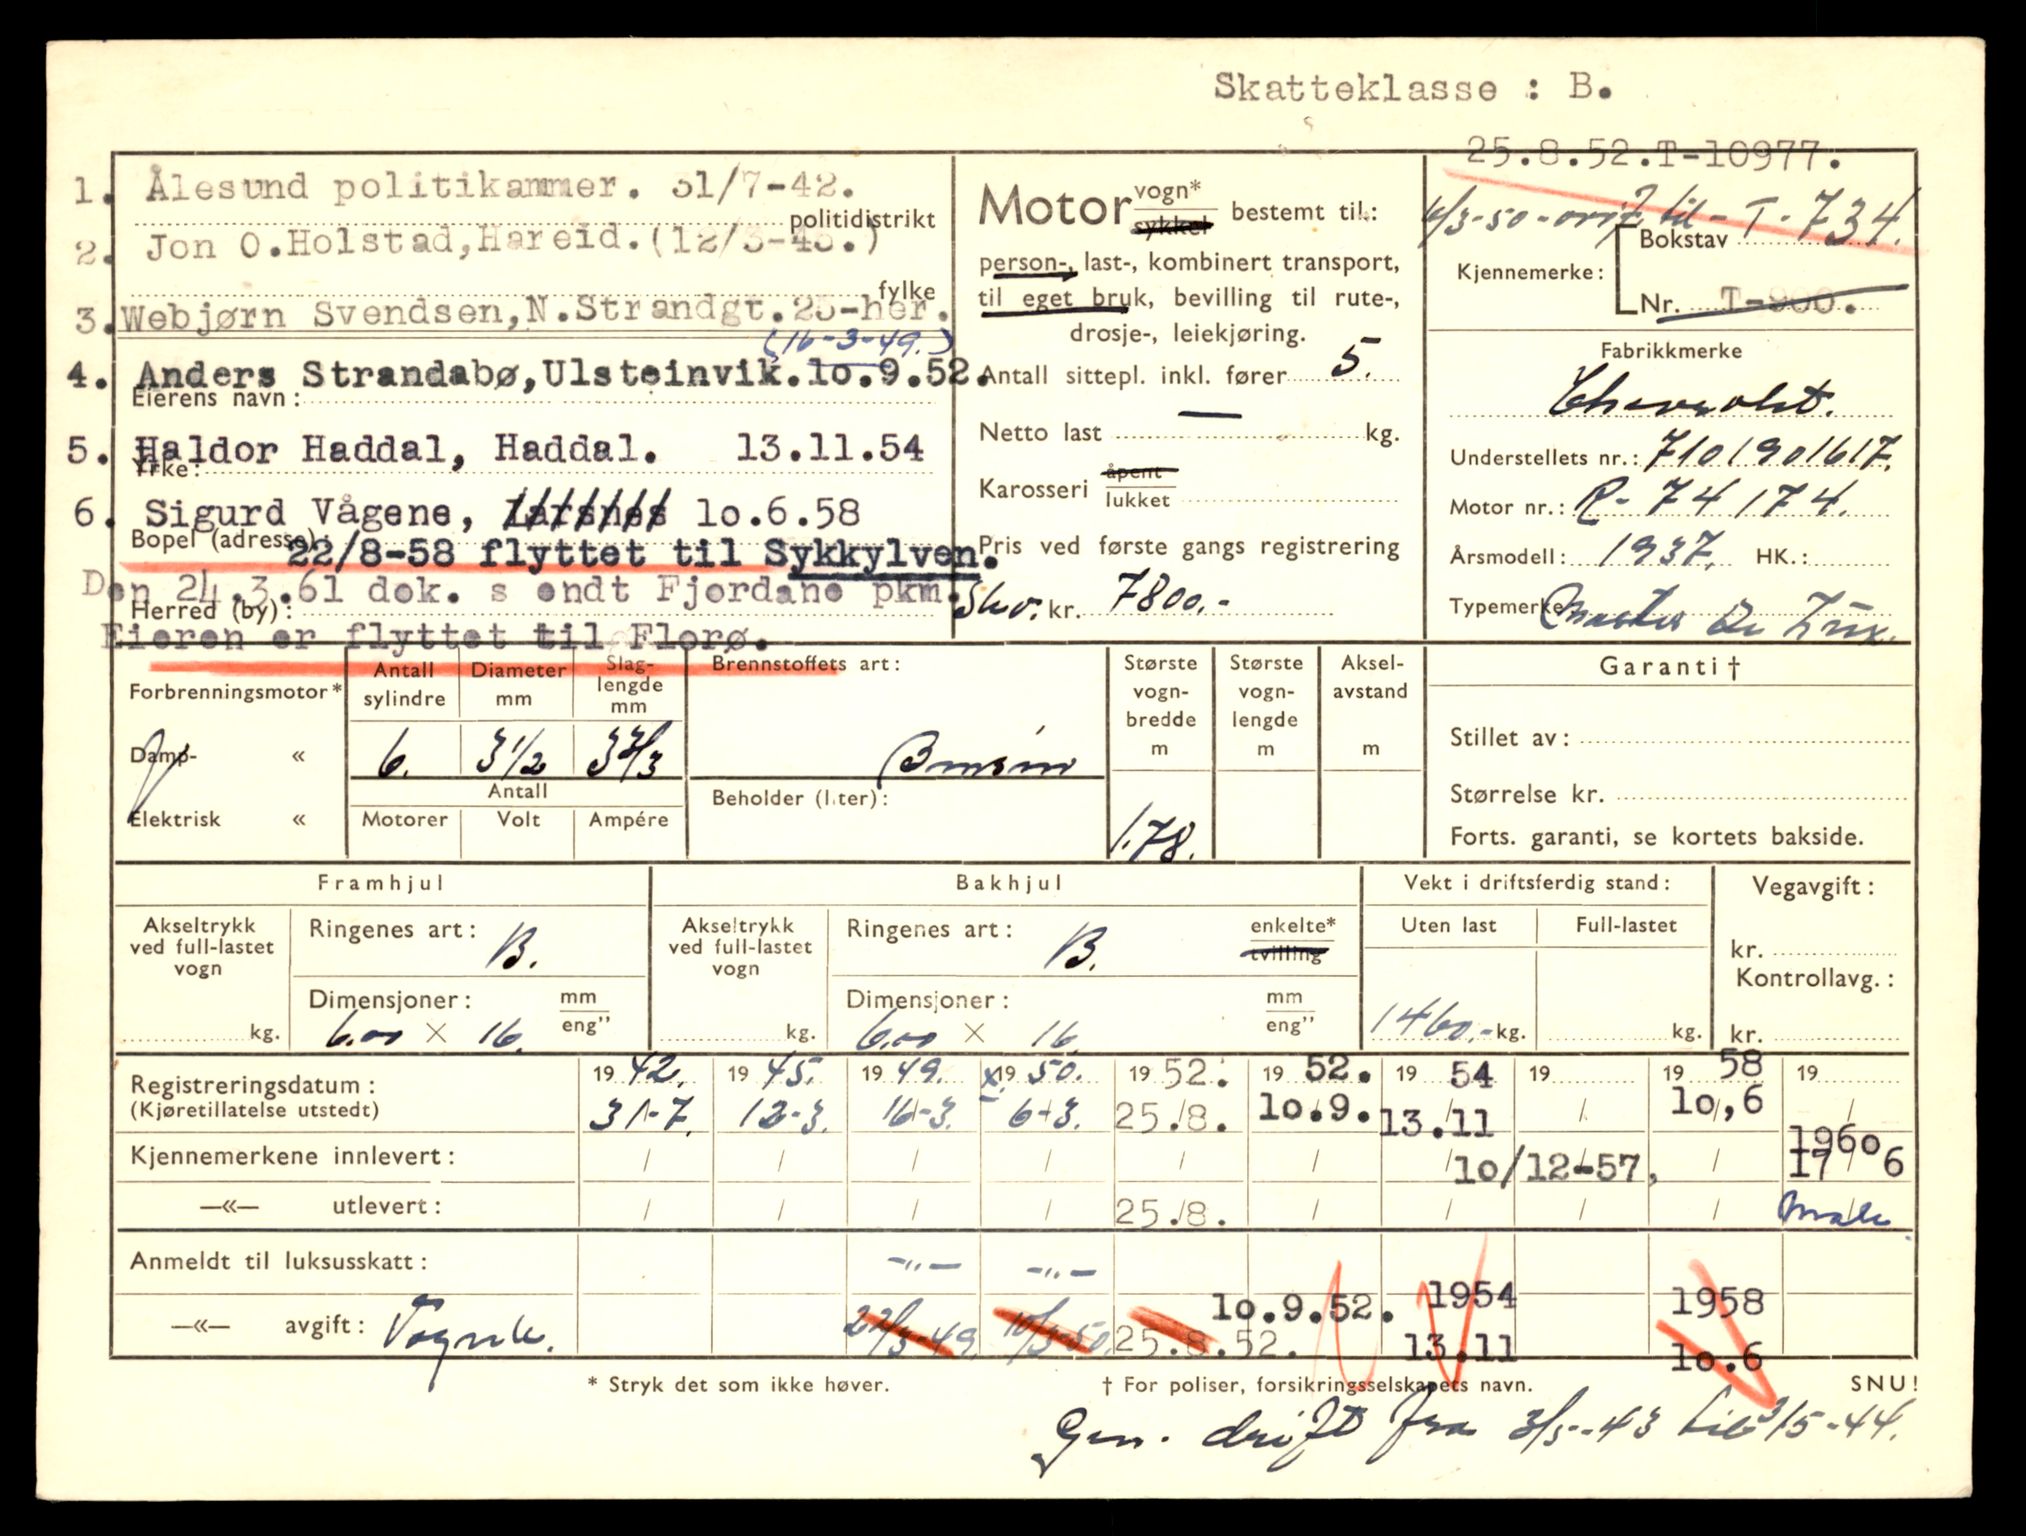 Skatteklasse : B.
25.8.52.T-10977.
1. Ålesund politikammer. 31/7-42.
politidistrikt
2. Jon O.Holstad,Hareid.(12/3-45.)
fylke
3. Webjørn Svendsen,N.Strandgt.25-her.
(16-3-49.)
4. Anders Strandabø,Ulsteinvik.lo.9.52.
Eierens navn:
5. Haldor Haddal, Haddal. 13.11.54
Yrke:
6. Sigurd Vågene, Larsnes lo.6.58
Bopel (adresse):
22/8-58 flyttet til Sykkylven.
Den 24.3.61 dok. s endt Fjordane pkm.
Herred (by):
Eieren er flyttet til Florø.
Motor vogn* sykkel bestemt til:
person-, last-, kombinert transport,
til eget bruk, bevilling til rute-,
drosje-, leiekjøring.
Antall sittepl. inkl. fører 5.
Netto last — kg.
Karosseri åpent lukket
Pris ved første gangs registrering
kr. 7800.-
6/3-50- til - T - 734.
Bokstav
Kjennemerke:
Nr. T-900.
Fabrikkmerke
Chevrolet.
Understellets nr.: 7101901617.
Motor nr.: R-74174.
Årsmodell: 1937. HK.:
Typemerke: Master De Lux.
Forbrenningsmotor*
Damp- «
Elektrisk «
Antall sylindre
Diameter mm
Slag-lengde mm
6. 3 1/2 3 3/3
Antall
Motorer Volt Ampére
Brennstoffets art:
Bensin
Beholder (liter):
Største vogn-bredde m
1.78.
Største vogn-lengde m
Aksel-avstand m
Garanti†
Stillet av:
Størrelse kr.
Forts. garanti, se kortets bakside.
Framhjul
Akseltrykk ved full-lastet vogn
kg.
Ringenes art: B.
Dimensjoner: mm eng”
6.00 × 16.
Bakhjul
Akseltrykk ved full-lastet vogn
kg.
Ringenes art: B. enkelte* tvilling
Dimensjoner: mm eng”
6.00 × 16
Vekt i driftsferdig stand:
Uten last Full-lastet
1460.- kg. kg.
Vegavgift:
kr.
Kontrollavg.:
kr.
Registreringsdatum: 1942. 1945. 1949. x. 1950. 1952. 1952. 1954 19 1958 19
(Kjøretillatelse utstedt) 31-7. 12-3. 16-3. 6-3. 25./8. lo.9. 13.11 / lo,6 /
1960
Kjennemerkene innlevert: / / / / / / / 10/12-57, / 17/6
—«— utlevert: / / / / 25./8. / / / /
Anmeldt til luksusskatt: -"- -"-
—«— avgift: 22/3-49. 10/3-50. 25.8.52. lo.9.52. 1954 13.11 1958 lo.6
* Stryk det som ikke høver.
† For poliser, forsikringsselskapets navn.
SNU!
Gen. drift fra 3/5-43 til 3/5-44.